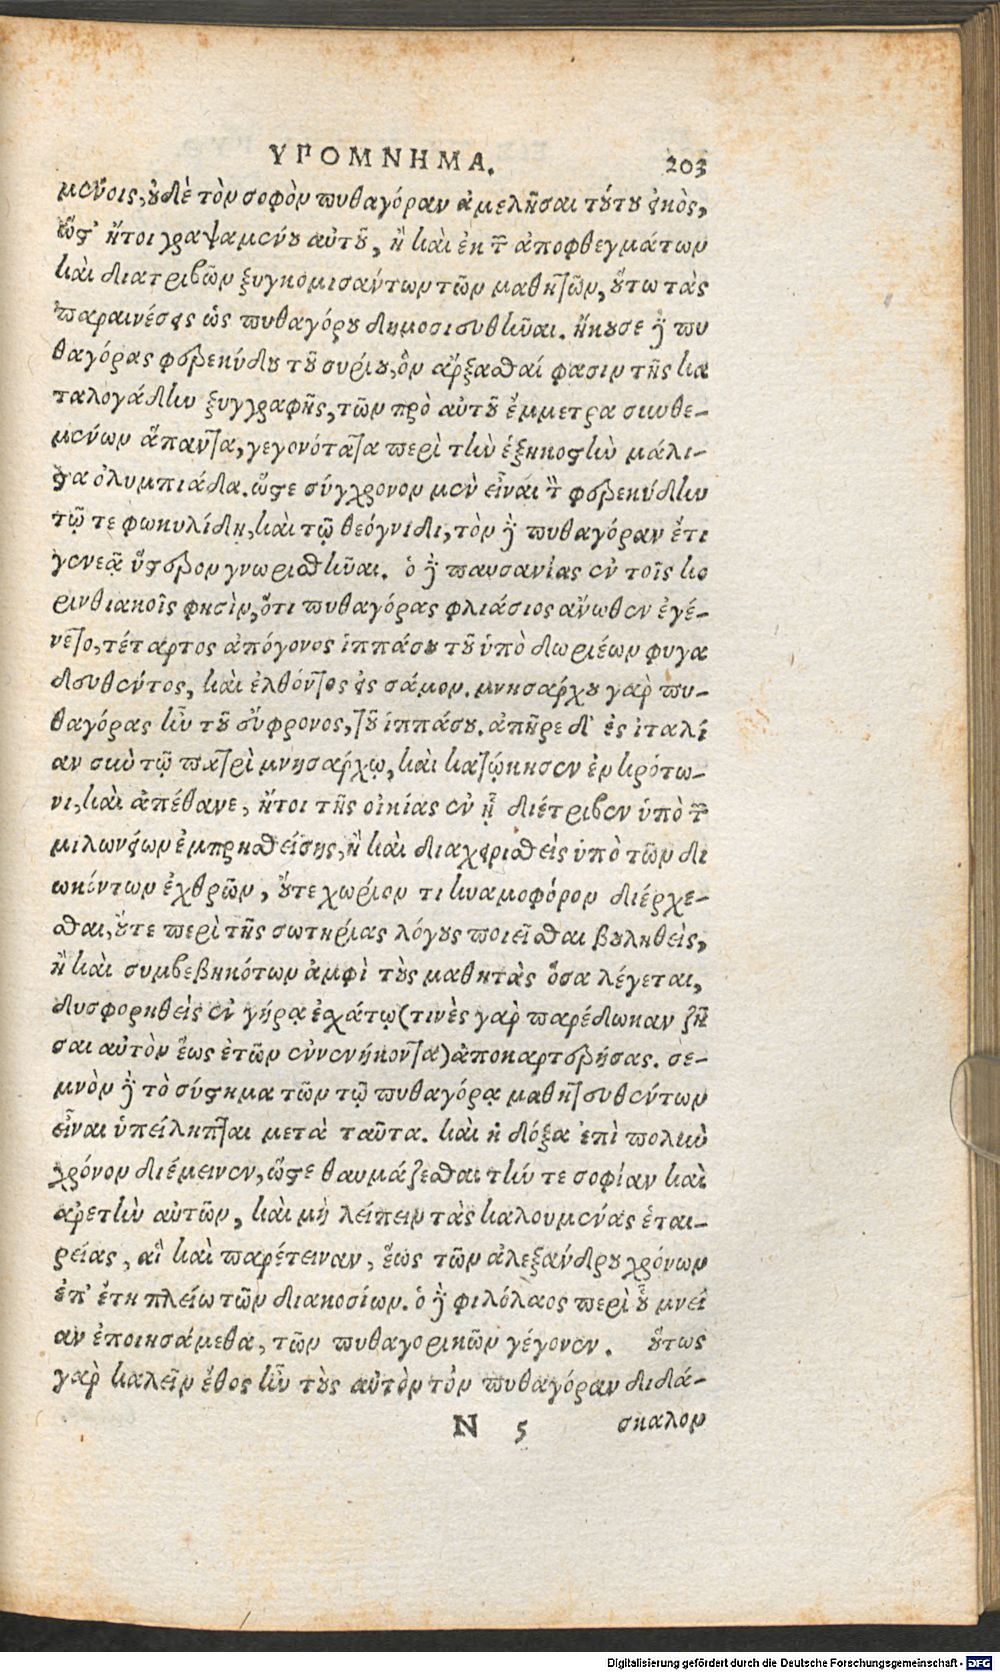 ΥΠΟΜΝΗΜΑ. 203
μένοις, οὐδὲ τὸν σοφὸν πυθαγόραν ἀμελῆσαι τούτου εἰκὸς,
ὥστ' ἤτοι γραψαμένου αὐτοῦ, ἢ καὶ ἐκ τῶν ἀποφθεγμάτων
καὶ διατριβῶν ξυγκομισάντων τῶν μαθητῶν, οὕτω τὰς
παραινέσεις ὡς πυθαγόρου δημοσιευθῆναι. ἤκουσε δὲ πυ
θαγόρας φερεκύδου τοῦ συρίου, ὃν ἄρξασθαί φασιν τῆς κα
ταλογάδην ξυγγραφῆς, τῶν πρὸ αὐτοῦ ἔμμετρα συνθε-
μένων ἅπαντα, γεγονότα τα περὶ τὴν ἑξηκοστὴν μάλι-
στα ὀλυμπιάδα. ὥστε σύγχρονον μὲν εἶναι τὸν φερεκύδην
τῷ τε φωκυλίδῃ, καὶ τῷ θεόγνιδι, τὸν δὲ πυθαγόραν ἔτι
γενεᾷ ὕστερον γνωρισθῆναι. ὁ δὲ παυσανίας ἐν τοῖς κο
ρινθιακοῖς φησὶν, ὅτι πυθαγόρας φλιάσιος ἄνωθεν ἐγέ-
νετο, τέταρτος ἀπόγονος ἱππάσου τοῦ ὑπὸ δωριέων φυγα
δευθέντος, καὶ ἐλθόντος εἰς σάμον. μνησάρχου γὰρ πυ-
θαγόρας ἦν τοῦ εὔφρονος, τοῦ ἱππάσου. ἀπῆρε δ' ἐς ἰταλί
αν σὺν τῷ πατρὶ μνησάρχῳ, καὶ κατῴκησεν ἐν κρότω-
νι, καὶ ἀπέθανε, ἤτοι τῆς οἰκίας ἐν ᾗ διέτριβεν ὑπὸ τῶν
μιλωνείων ἐμπρησθείσης, ἢ καὶ διαχειρισθεὶς ὑπὸ τῶν δι
ωκόντων ἐχθρῶν, οὔτε χωρίον τι κυαμοφόρον διέρχε-
σθαι, οὔτε περὶ τῆς σωτηρίας λόγους ποιεῖσθαι βουληθεὶς,
ἢ καὶ συμβεβηκότων ἀμφὶ τοὺς μαθητὰς ὅσα λέγεται,
δυσφορηθεὶς ἐν γήρᾳ ἐσχάτῳ (τινὲς γὰρ παρέδωκαν ζῆ
σαι αὐτὸν ἕως ἐτῶν ἐννενήκοντα) ἀποκαρτερήσας. σε-
μνὸν δὲ τὸ σύστημα τῶν τῷ πυθαγόρᾳ μαθητευθέντων
εἶναι ὑπείληπται μετὰ ταῦτα. καὶ ἡ δόξα ἐπὶ πολὺν
χρόνον διέμεινεν, ὥστε θαυμάζεσθαι τήν τε σοφίαν καὶ
ἀρετὴν αὐτῶν, καὶ μὴ λείπειν τὰς καλουμένας ἑται-
ρείας, αἳ καὶ παρέτειναν, ἕως τῶν ἀλεξάνδρου χρόνων
ἐπ' ἔτη πλείω τῶν διακοσίων. ὁ δὲ φιλόλαος περὶ οὗ μνεί
αν ἐποιησάμεθα, τῶν πυθαγορικῶν γέγονεν. οὕτως
γὰρ καλεῖν ἔθος ἦν τοὺς αὐτὸν τὸν πυθαγόραν διδά-
N 5 σκαλον
Digitalisierung gefördert durch die Deutsche Forschungsgemeinschaft - DFG